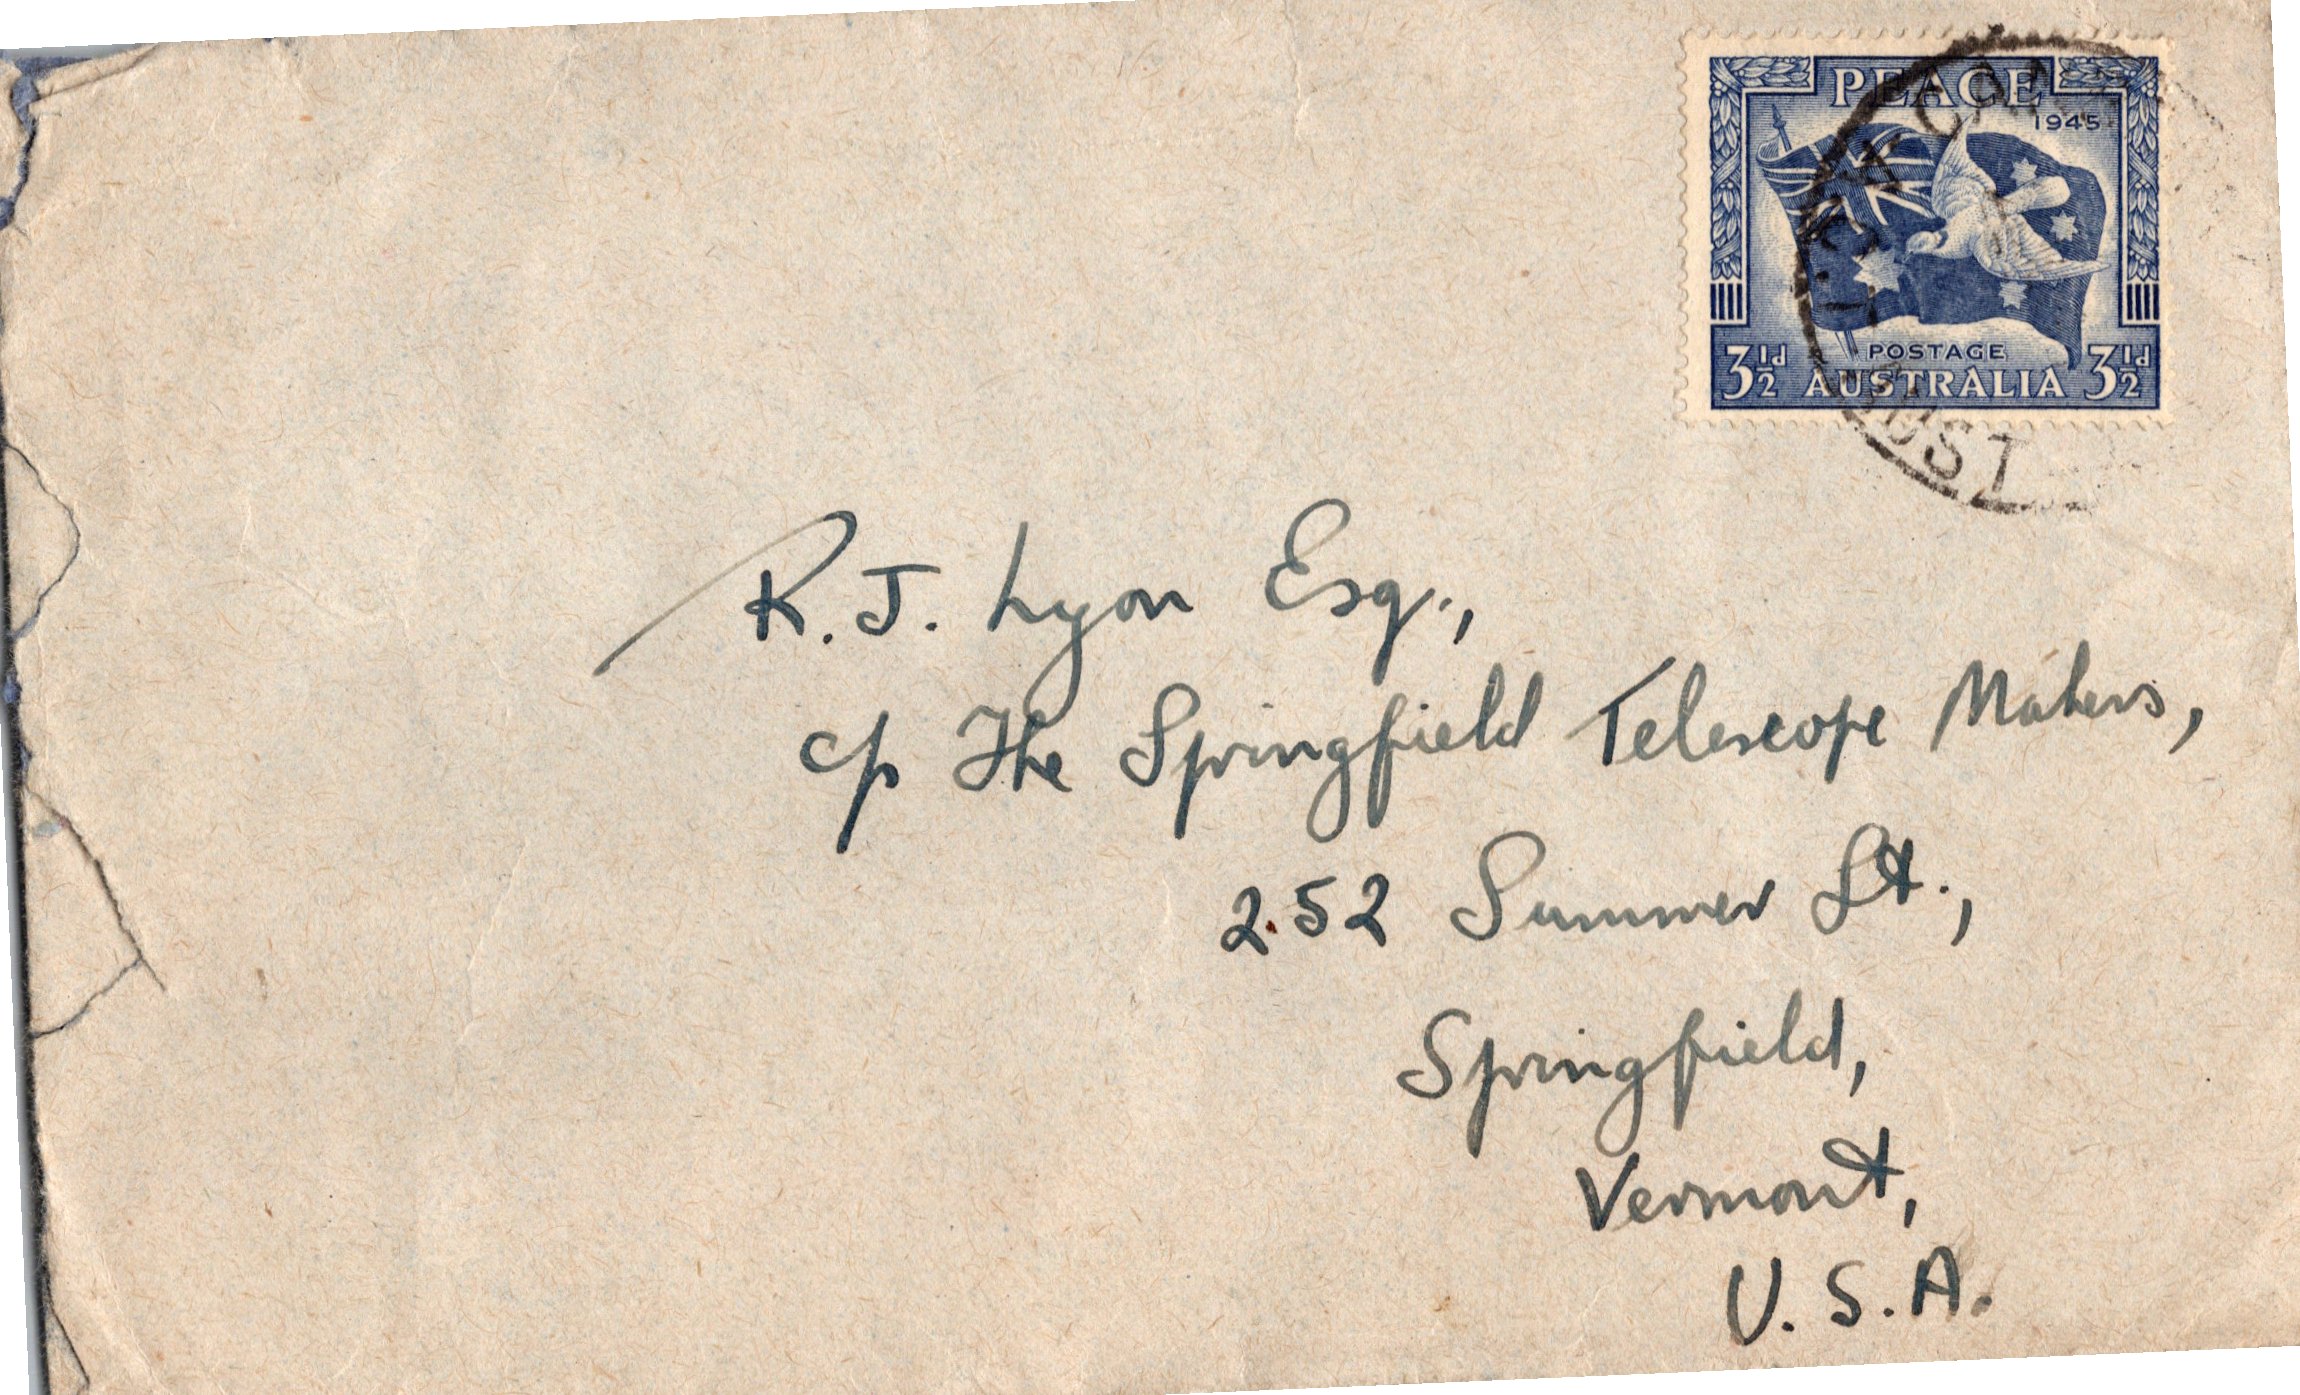 PEACE
1945
POSTAGE
3½d AUSTRALIA 3½d
R. J. Lyon Esq.,
c/o The Springfield Telescope Makers,
252 Summer St.,
Springfield,
Vermont,
U. S. A.